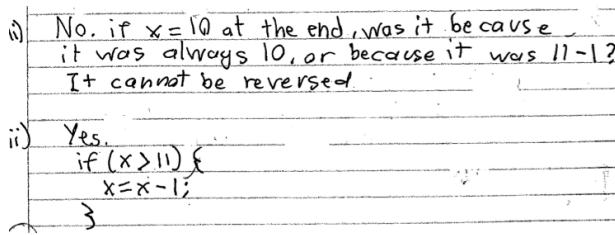 i) No. if x = 10 at the end, was it because
it was always 10, or because it was 11-1?
It cannot be reversed.
ii) Yes.
if (x > 11) {
x = x - 1;
}